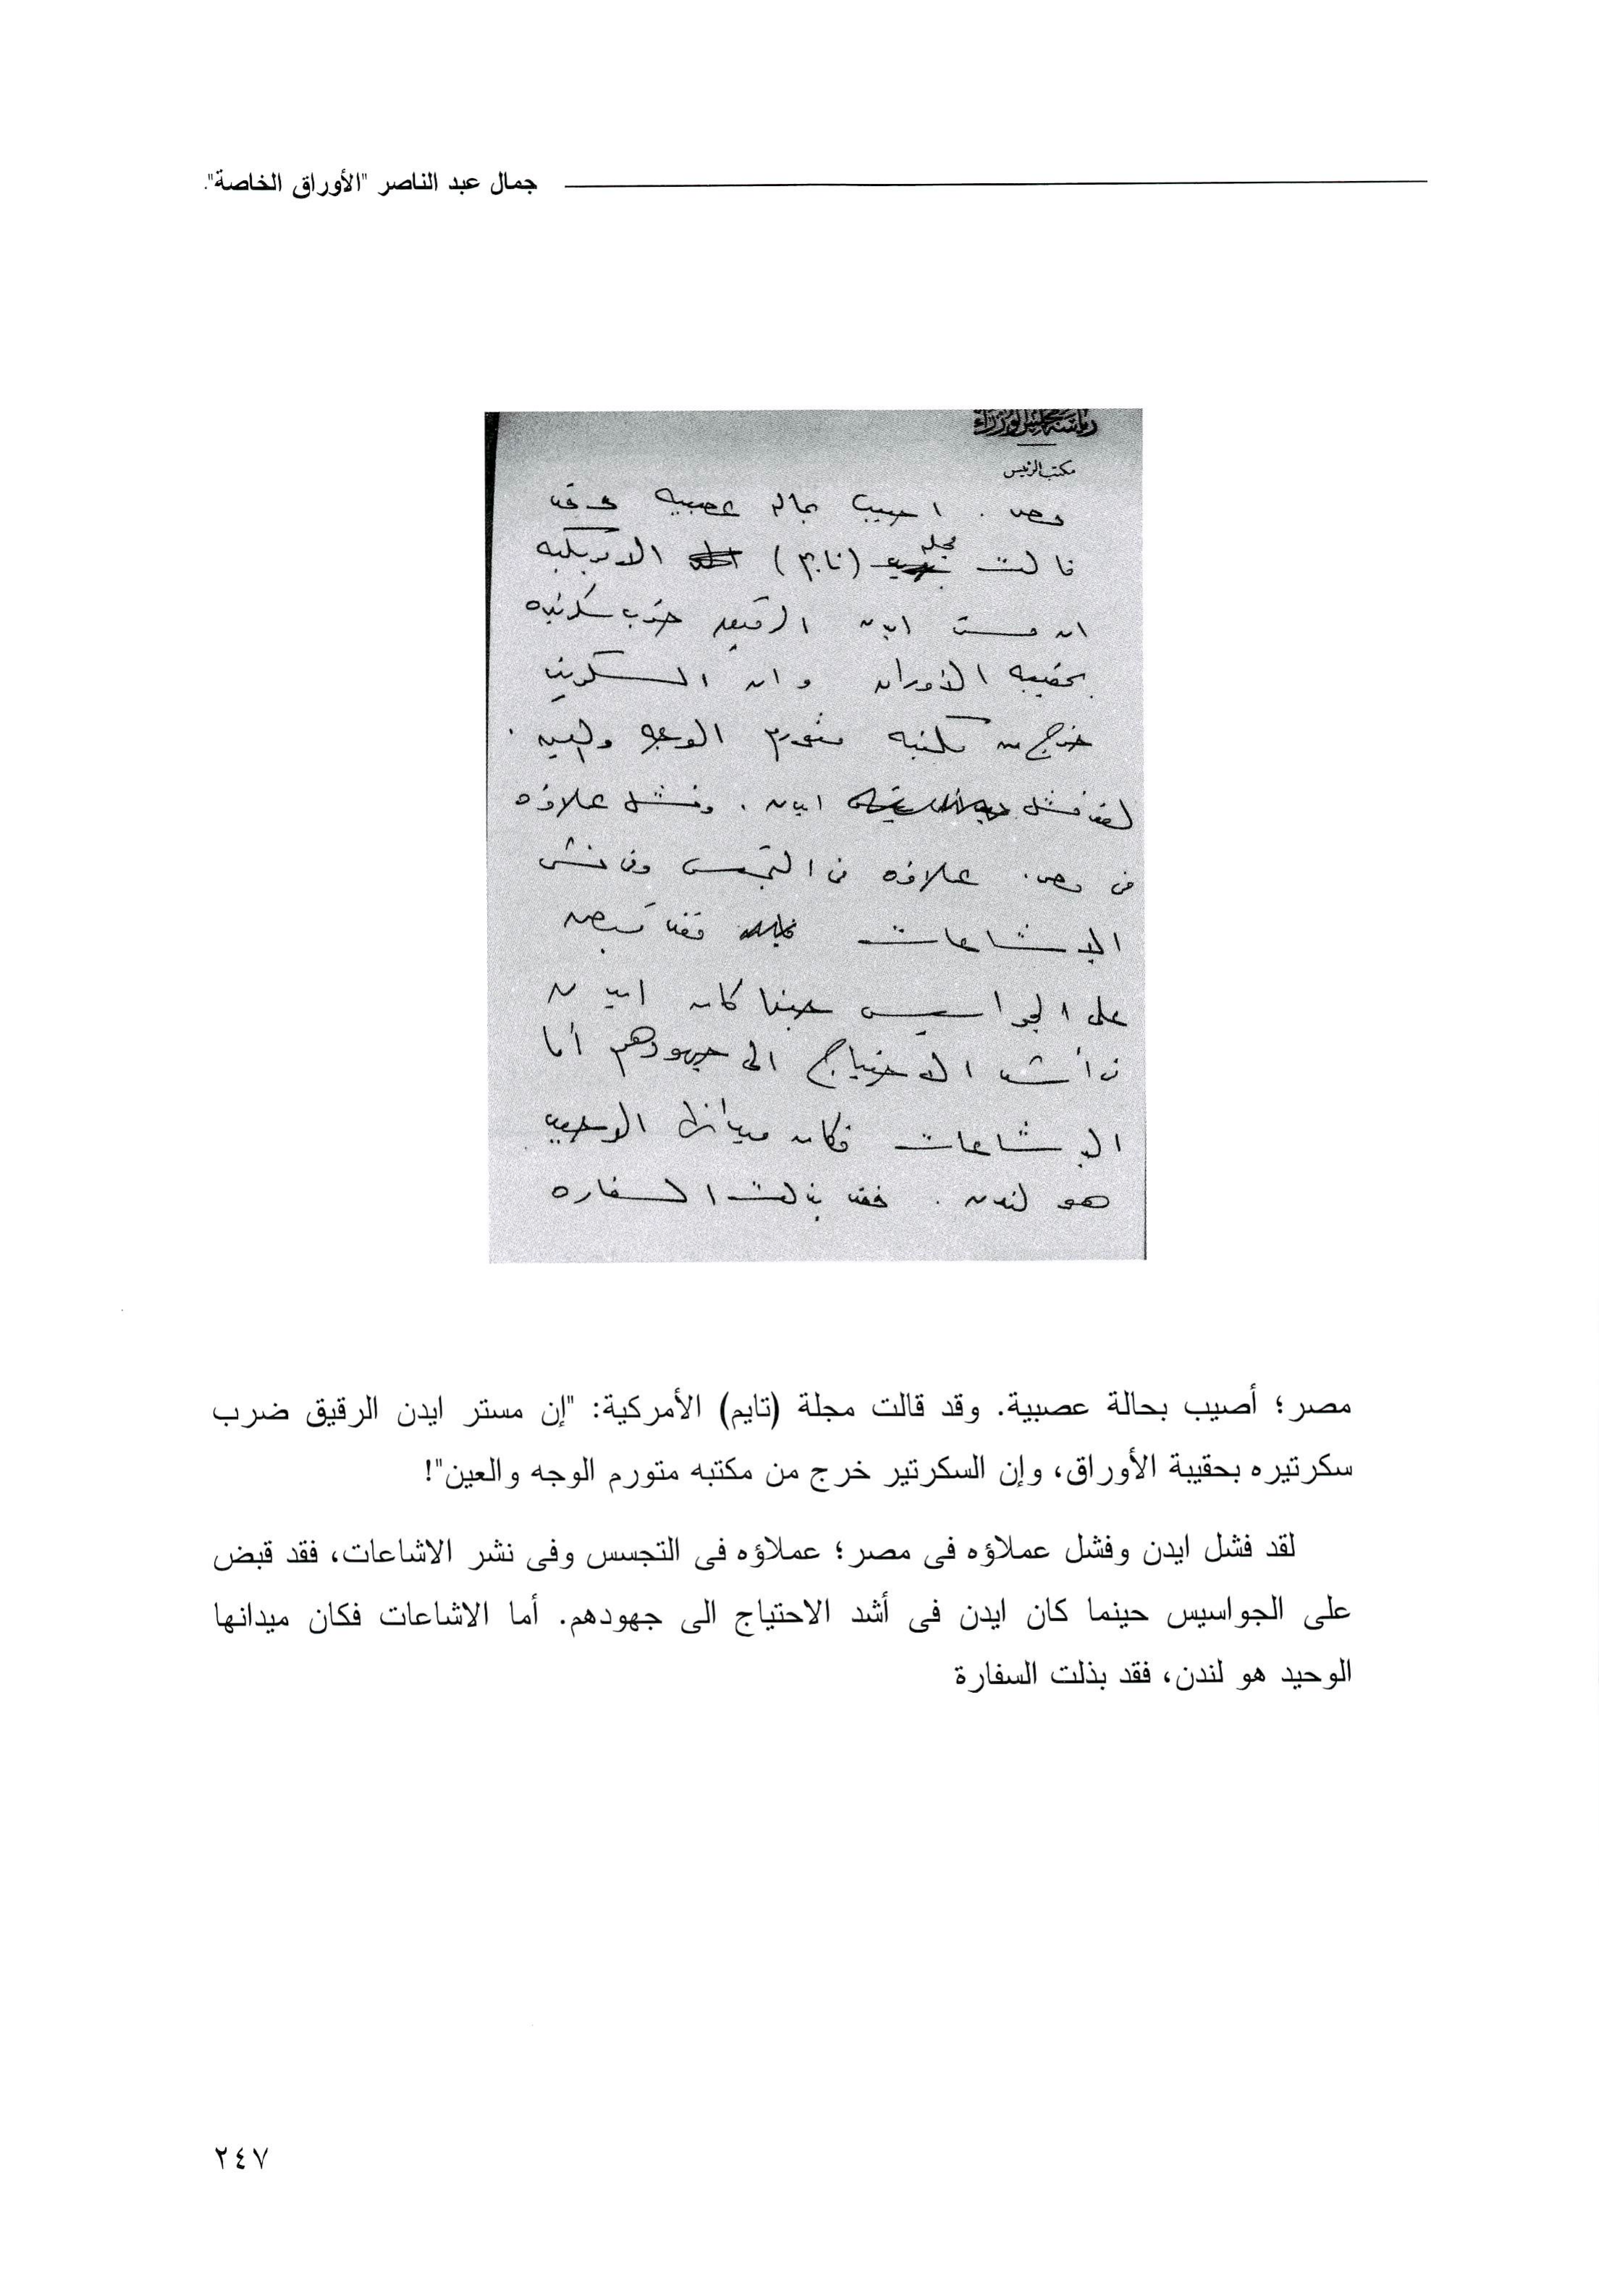 جمال عبد الناصر "الأوراق الخاصة".
رئاسة مجلس الوزراء
مكتب الرئيس
مصر . اصيب بحاله عصبيه وقد
قالت مجله (تايم) الامريكيه
ان مستر ايدن الرقيق ضرب سكرتيره
بحقيبه الأوراق وان السكرتير
خرج من مكتبه متورم الوجه والعين .
لقد فشل ايدن . وفشل عملاؤه
فى مصر . عملاؤه فى التجسس وفى نشر
الاشاعات فقد قبض
على الجواسيس حينما كان ايدن
فى أشد الاحتياج الى جهودهم أما
الاشاعات فكان ميدانها الوحيد
هو لندن . فقد بذلت السفاره
مصر؛ أصيب بحالة عصبية. وقد قالت مجلة (تايم) الأمركية: "إن مستر ايدن الرقيق ضرب
سكرتيره بحقيبة الأوراق، وإن السكرتير خرج من مكتبه متورم الوجه والعين"!
لقد فشل ايدن وفشل عملاؤه فى مصر؛ عملاؤه فى التجسس وفى نشر الاشاعات، فقد قبض
على الجواسيس حينما كان ايدن فى أشد الاحتياج الى جهودهم. أما الاشاعات فكان ميدانها
الوحيد هو لندن، فقد بذلت السفارة
٢٤٧